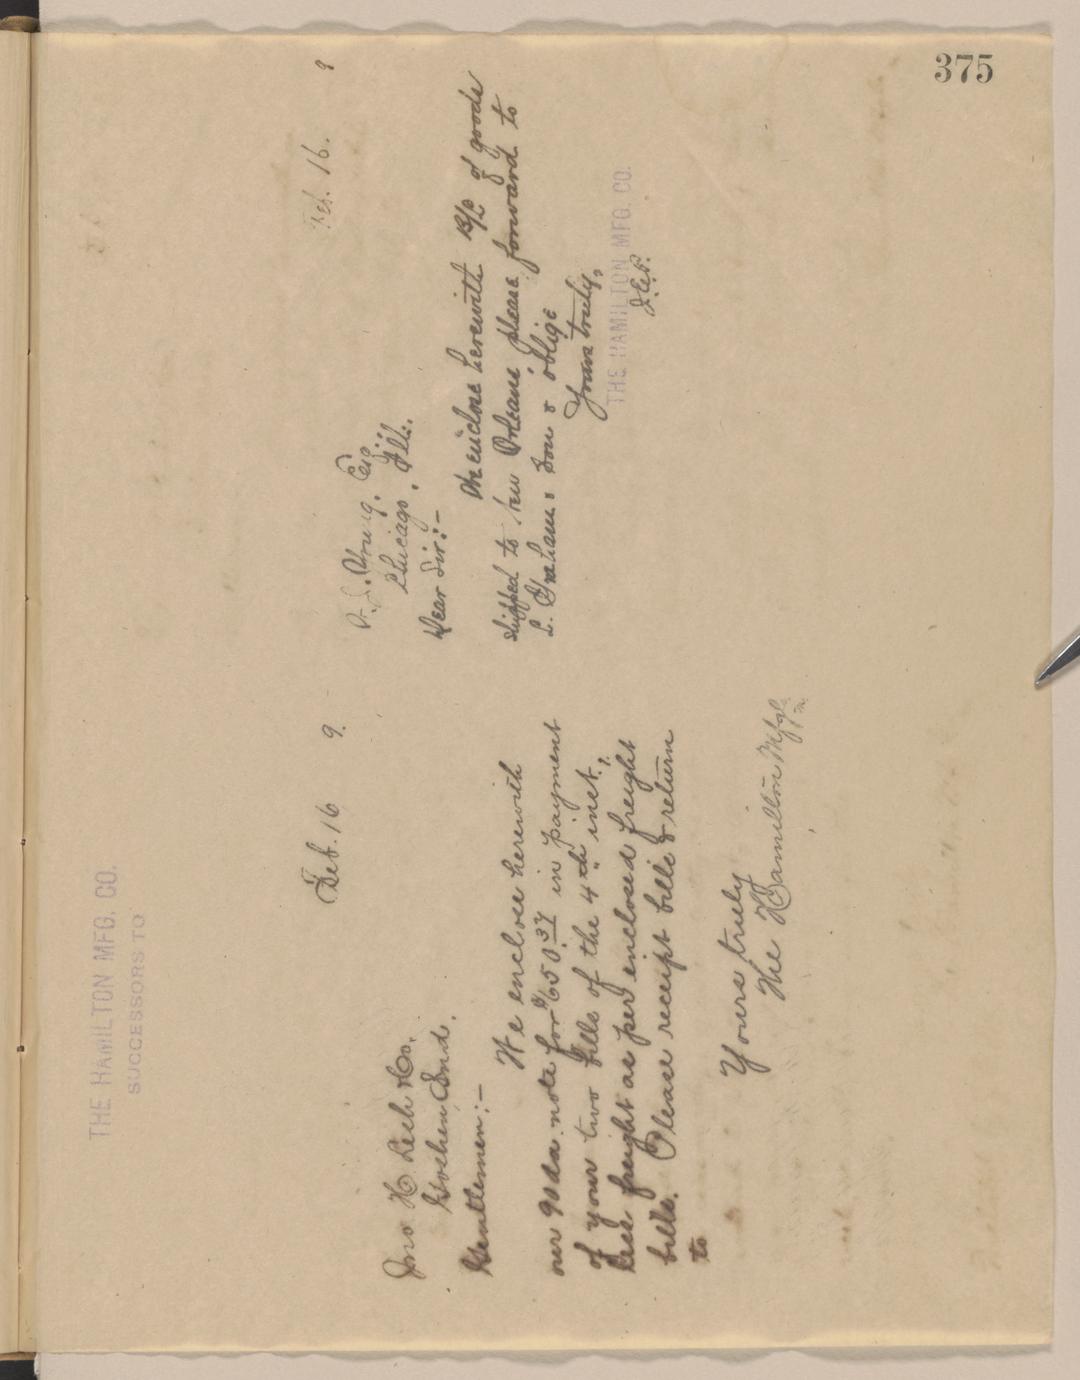 375
THE HAMILTON MFG. CO.
SUCCESSORS TO
Feb. 16 9.
Jno H Lesh & Co.
Goshen, Ind.
Gentlemen:-
We enclose herewith
our 90 da. note for $650.37 in payment
of your two bills of the 4th inst.,
less freight as per enclosed freight
bills. Please receipt bills & return
to
Yours truly
The Hamilton Mfg Co
Feb. 16. 9
Young, Esq.,
Chicago, Ill.
Dear Sir:-
We enclose herewith B/L of goods
shipped to New Orleans please forward to
L. Graham & Son & oblige
Yours truly,
THE HAMILTON MFG. CO.
J.E.P.